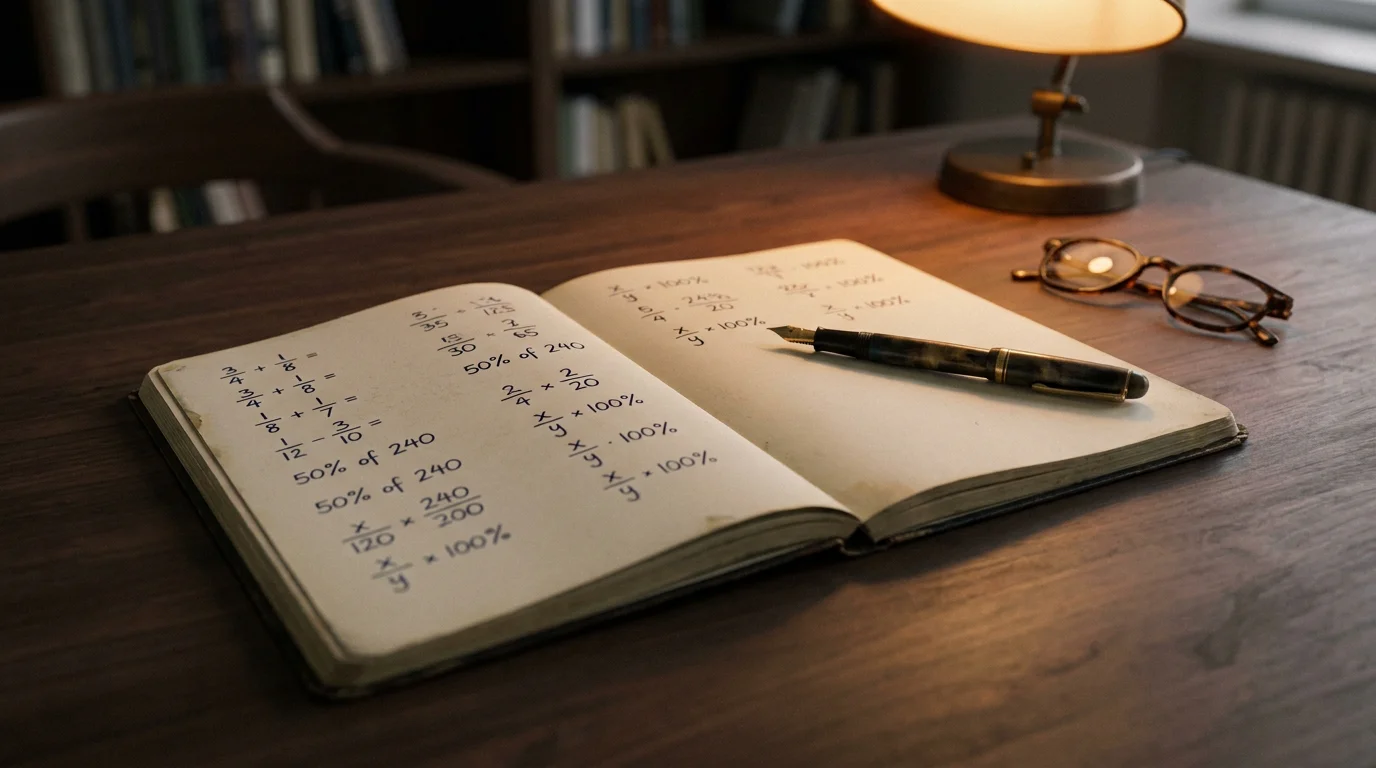 3/4 + 1/8 =
3/4 + 1/8 =
1/8 + 1/7 =
1/12 - 3/10 =
50% of 240
50% of 240
x/120 × 240/200
x/y × 100%
15/30 × 3/65
50% of 240
2/4 × 2/20
x/y × 100%
x/y · 100%
x/y × 100%
x/y × 100%
x/y × 100%
x/y × 100%